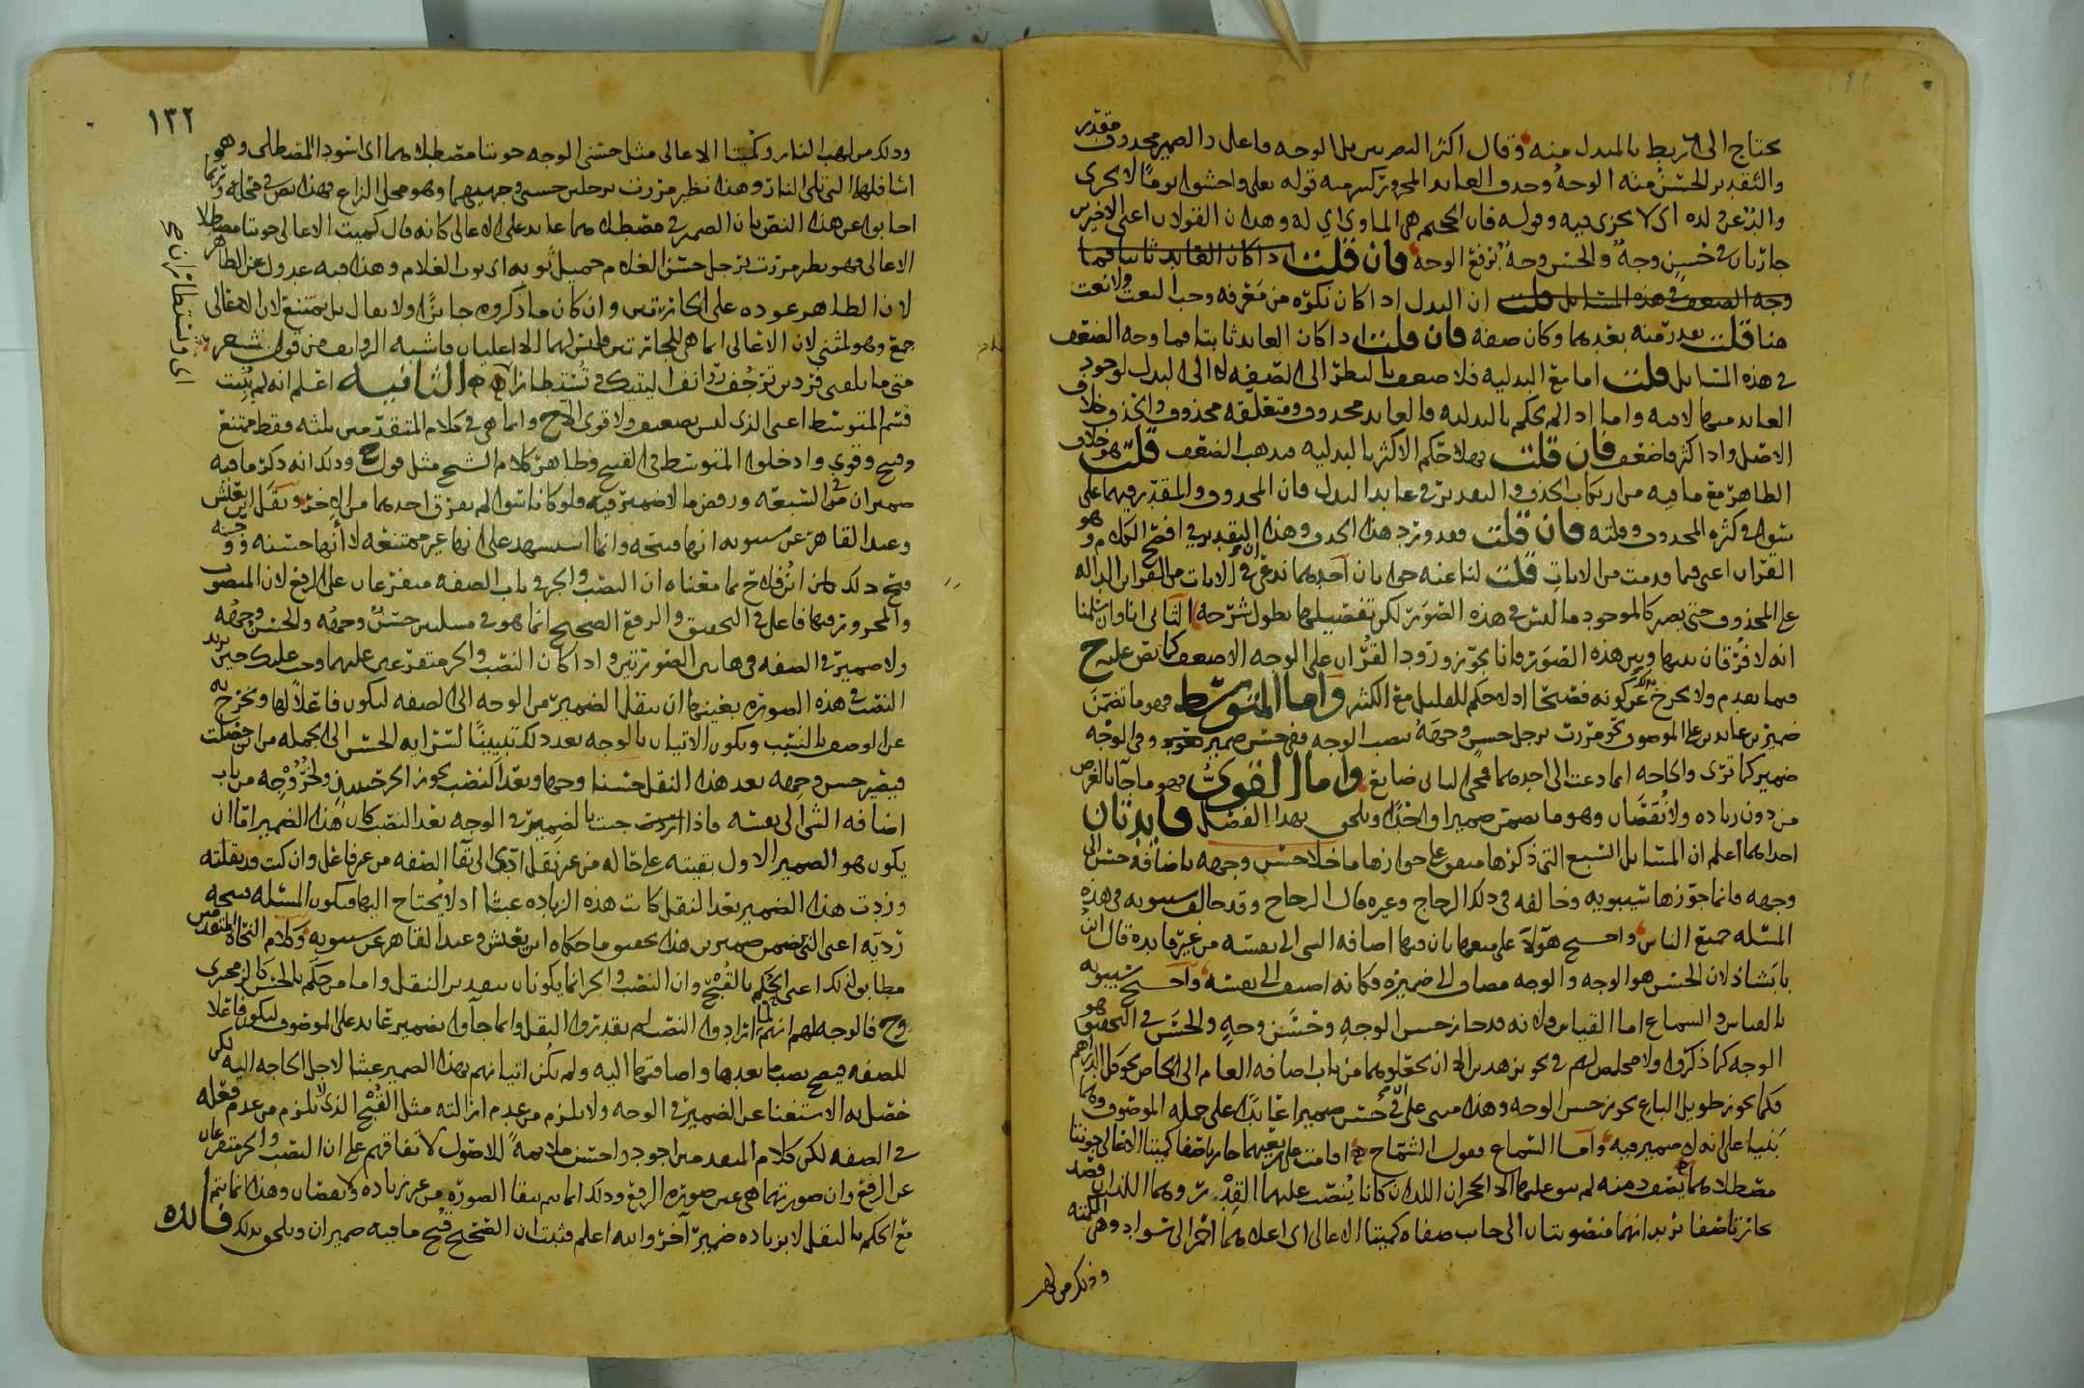 يحتاج الى ربط بالمبدل منه وقال اكثر البصريين بل الوجه فاعل والضمير محذوف مقدر
والتقدير الحسن منه الوجه وحذف العايد المجرور كثير منه قوله تعالى واخشوا يوما لا يجزى
والد عن ولده اى لا يجزى فيه وقوله فان الجحيم هى الماوى اى له وهذان القولان اعنى الاخيرين
جاريان فى حسن وجه والحسن وجه برفع الوجه فان قلت اذا كان العايد ثابتا فما
وجه الضعف فى هذه المسايل قلت ان البدل اذا كان نكره من معرفه وجب النعت ولا نعت
هنا قلت بعد منه بعدهما وكان صفه فان قلت اذا كان العايد ثابتا فما وجه الضعف
فى هذه المسايل قلت اما مع البدليه فلا ضعف بالنظر الى الصفه لا الى البدل لوجود
العايد فيها لا فيه واما اذا لم يحكم بالبدليه فالعايد محذوف ومتعلقه محذوف والحذف خلاف
الاصل واذا كثر ضعف فان قلت فهلا حكم الاكثر بالبدليه فيذهب الضعف قلت هو خلاف
الظاهر مع ما فيه من ارتكاب الحذف والتقدير فى عايد البدل فان المحذوف والمقدر فيهما على
سواء فى كثره المحذوف وقلته فان قلت فقد ورد هذا الحذف وهذا التقدير فى افصح الكلام وهو
القران اعنى فيما قدمت من الايات قلت لنا عنه جوابان احدهما ندعى ان فى الايات من القراين الداله
على المحذوف حتى يصير كالموجود ما ليس فى هذه الصور لكن تفصيلها يطول شرحه الثانى انا وان سلمنا
انه لا فرق بينها وبين هذه الصور فانا نجوز ورود القران على الوجه الاضعف كما نص عليه ح
فيما تقدم ولا يخرج عن كونه فصيحا اذ لا حكم للقليل مع الكثير واما المتوسط فهو ما تضمن
ضميرين عايدين على الموصوف نحو مررت برجل حسن وجهه بنصب الوجه ففى حسن ضمير وفى الوجه
ضمير كما ترى والحاجه انما دعت الى احدهما فمجى الثانى ضايع واما القوى فهو ما جا بالغرض
من دون زياده ولا نقصان وهو ما تضمن ضميرا واحدا ويلحق بهذا الفصل فايدتان
احداهما اعلم ان المسايل التسع التى ذكرها متفق على جوازها ما خلا حسن وجهه باضافه حسن الى
وجهه فانما جوزها سيبويه وخالفه فى ذلك الزجاج وغيره قال الزجاج وقد خالف سيبويه فى هذه
المسئله جميع الناس واحتج هولا على منعها بان فيها اضافه الشى الى نفسه من غير فايده قال ابن
بابشاذ لان الحسن هو الوجه والوجه مضاف الى ضميره فكانه اضيف الى نفسه واحتج سيبويه
بالقياس والسماع اما القياس فلانه قد جاز حسن الوجه وحسن وجه والحسن فى التحقيق هو
الوجه كما ذكروا ولا مخلص لهم فى تجويز هذين الا ان يجعلوهما من باب اضافه العام الى الخاص نحو كل الدراهم
فكما يجوز طويل الباع يجوز حسن الوجه وهذا مبنى على ان فى حسن ضميرا عايدا على جمله الموصوف
بنيا على انه لا ضمير فيه واما السماع فقول الشماخ اقامت على ربعيهما جارتا صفا كميتا الاعالى جونتا
مصطلاهما لم يبق عليها الا الحجران اللذان كانا ينصب عليهما القدر وهما اللذان
جارتا صفا يريد انهما منصوبتان الى جانب صفاه كميتا الاعالى اى اعلاهما احمر الى سواد وهى
وذلك من لهب
١٣٢
وذلك من لهب النار وكميتا الاعالى مثل حسنى الوجه جونتا مصطلاهما اى اسودا المصطلى وهو
اسافلهما التى تلى النار وهذا نظير مررت برجلين حسنى وجهيهما وهو محل النزاع فهذا نص فى محله وربما
اجابوا عن هذا النص بان الضمير فى مصطلاهما عايد على الاعالى كانه قال كميت الاعالى جونتا مصطلا
الاعالى فهو نظير مررت برجل حسن الغلام جميل ثوبه اى ثوب الغلام وهذا فيه عدول عن الظاهر
لان الظاهر عوده على الجارتين وان كان ما ذكروه جايزا ولا يقال بل يمتنع لان الاعالى
جمع وهو لمثنى لان الاعالى انما هى للجارتين وليس لهما الا اعليان فاشبه الروانف من قول شعر
متى ما تلقنى فردين ترجف روانف اليتيك وتستطارا الثانيه اعلم انه لم يثبت
قسم المتوسط اعنى الذى ليس بضعيف ولا قوى الا ح وانما هى فى كلام المتقدمين ثلثه فقط ممتنع
وقبيح وقوى وادخلوا المتوسط فى القبيح وظاهر كلام الشيخ مثل قول ح وذلك انه ذكر ما فيه
ضميران من التسعه ورفض ما لا ضمير فيه فلو كانا سوا لم يفرق احدهما من الاخر ونقل ابن يعيش
وعبد القاهر عن سيبويه انها قبيحه وانما استشهد على انها غير ممتنعه لا انها حسنه ووجه
قبح ذلك ما معناه ان النصب والجر فى باب الصفه متفرعان على الرفع لان المنصوب
والمجرور فيها فاعل فى التحقيق والرفع الصحيح انما هو فى مسلتين حسن وجهه والحسن وجهه
ولا ضمير فى الصفه فى هاتين الصورتين واذا كان النصب والجر متفرعين عليهما وجب عليك حين تريد
النصب فى هذه الصوره بعينها ان تنقل الضمير من الوجه الى الصفه ليكون فاعلا لها وتخرج به
عن الوصف بالسبب ويكون الاتيان بالوجه بعد ذلك تبيينا لسرايه الحسن الى الجمله من اين حصلت
فيصير حسن وجهه بعد هذا النقل حسنا وجها وبعد النصب يجوز الجر حسن وجه لخروجه من باب
اضافه الشى الى نفسه فاذا اردت جيت بالضمير فى الوجه بعد النصب كان هذا الضمير اما ان
يكون هو الضمير الاول بقيته على حاله من غير نقل ادى الى بقا الصفه من غير فاعل وان كنت قد نقلته
وزدت هذا الضمير بعد النقل كانت هذه الزياده عبثا اذ لا يحتاج اليها فتكون المسئله قبيحه
رديه اعنى التى تضمن ضميرين هذا تحقيق ما حكاه ابن يعيش وعبد القاهر عن سيبويه وكلام النحاه المتقدمين
مطابق لذلك اعنى الحكم بالقبح وان النصب والجر انما يكونان بتقدير النقل واما من حكم بالحسن كالزمخشرى
وح فالوجه لهم انهم لما ارادوا النصب لم يقدروا النقل وانما جاوا بضمير عايد على الموصوف ليكون فاعلا
للصفه فيصح نصبها ما بعدها واضافتها اليه ولم يكن اتيانهم بهذا الضمير عبثا لاجل الحاجه اليه لكن
حصل به الاستغنا عن الضمير فى الوجه ولا يلزم من عدم ازالته مثل القبح الذى يلزم من عدم فعله
فى الصفه لكن كلام المتقدمين اجود واحسن ملايمه للاصول لاتفاقهم على ان النصب والجر متفرعان
عن الرفع وان صورتهما هى عين صوره الرفع وذلك انما يتم ببقا الصوره من غير زياده ولا نقصان وهذا انما يتم
مع الحكم بالنقل لا بزياده ضمير اخر والله اعلم فثبت ان الصحيح قبح ما فيه ضميران ويلحق بذلك فايده